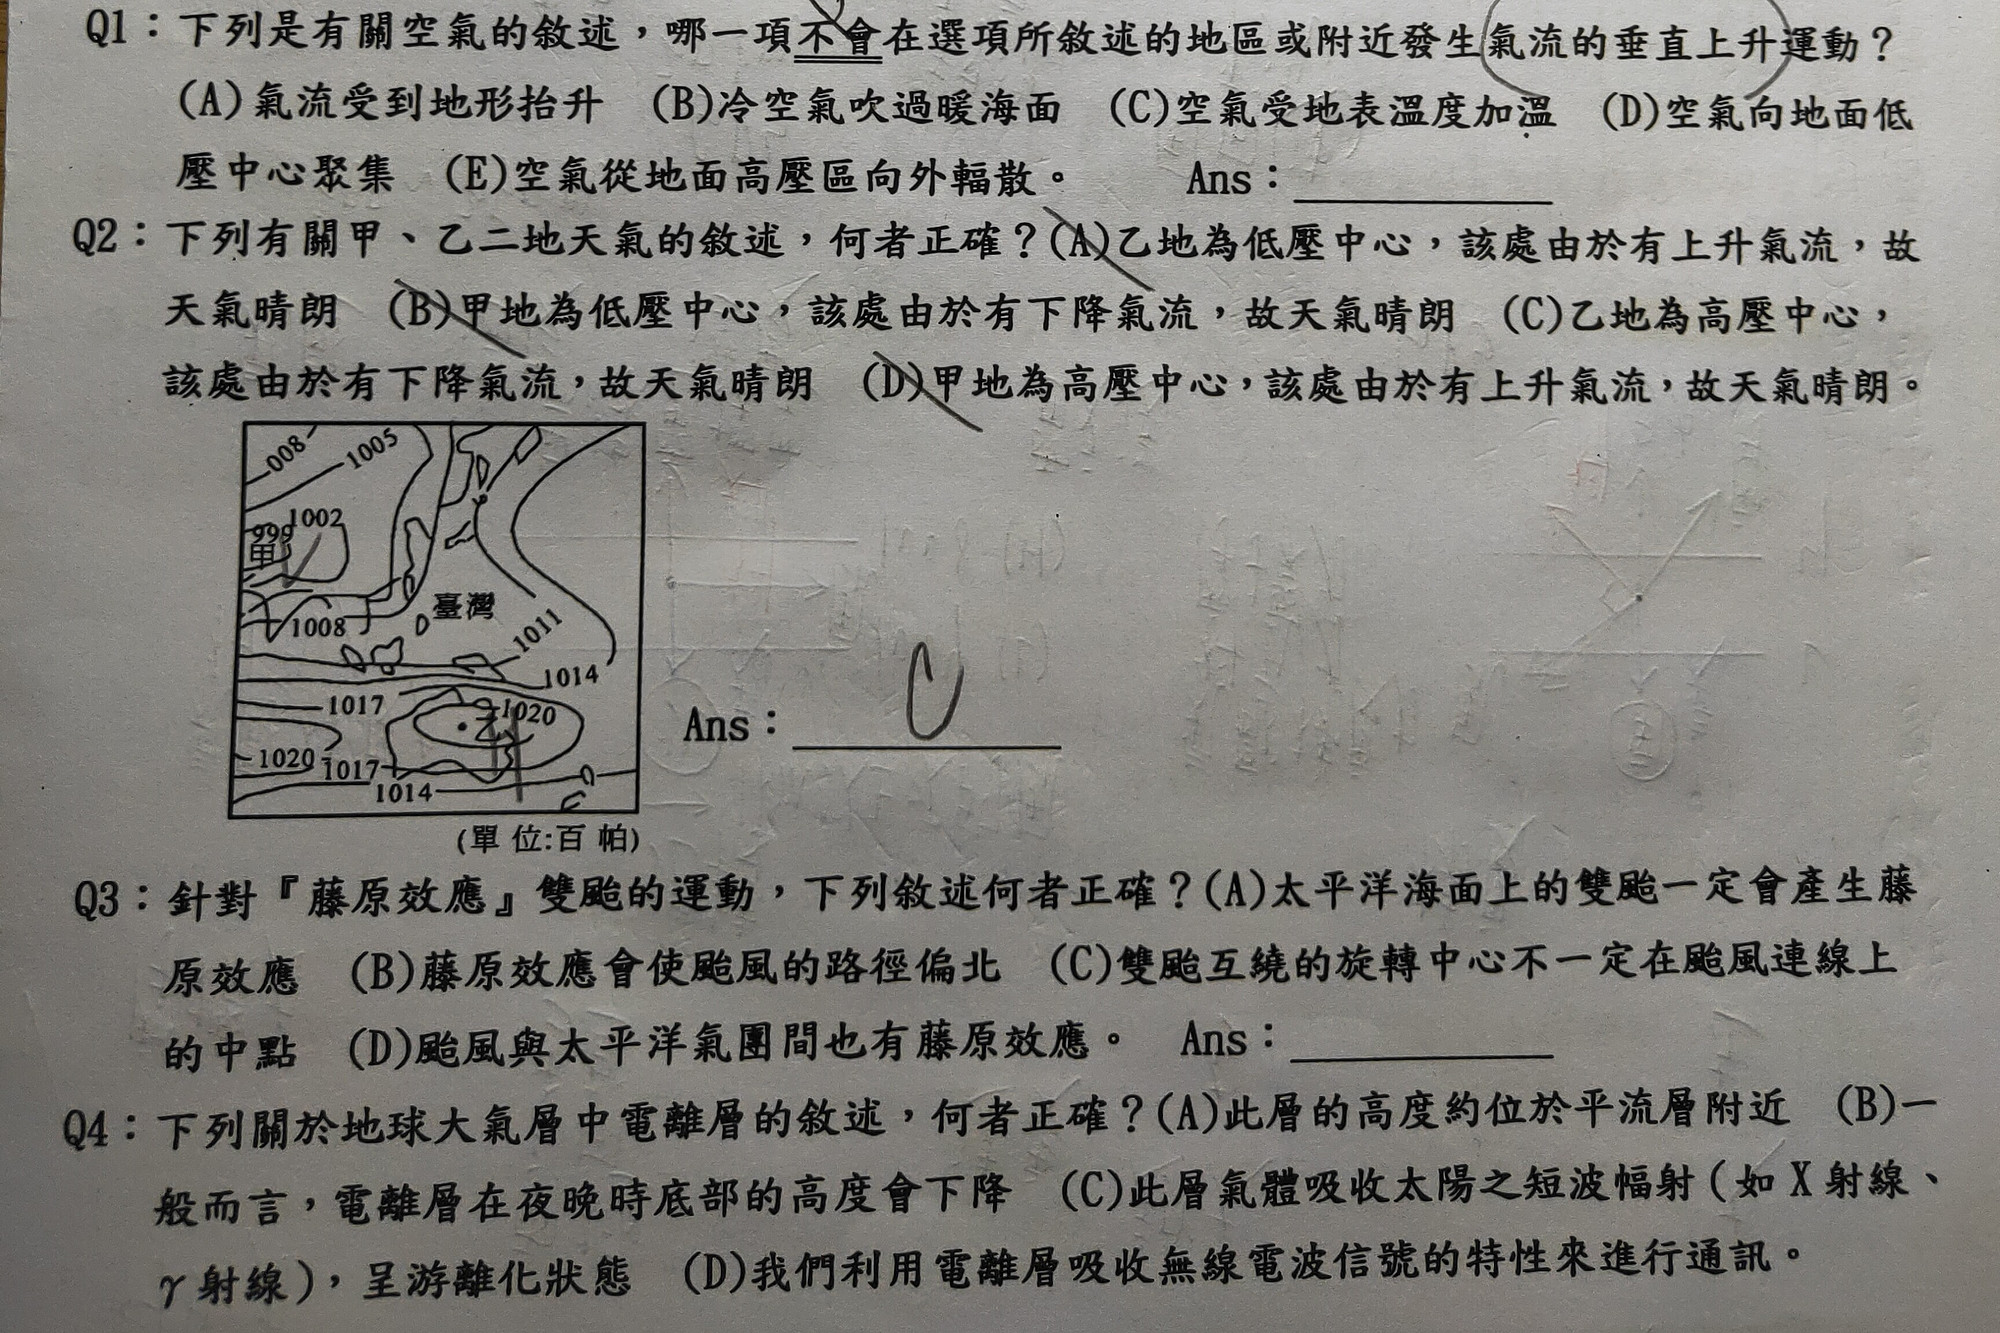 Q1：下列是有關空氣的敘述，哪一項不會在選項所敘述的地區或附近發生氣流的垂直上升運動？
(A)氣流受到地形抬升　(B)冷空氣吹過暖海面　(C)空氣受地表溫度加溫　(D)空氣向地面低
壓中心聚集　(E)空氣從地面高壓區向外輻散。　Ans：
Q2：下列有關甲、乙二地天氣的敘述，何者正確？(A)乙地為低壓中心，該處由於有上升氣流，故
天氣晴朗　(B)甲地為低壓中心，該處由於有下降氣流，故天氣晴朗　(C)乙地為高壓中心，
該處由於有下降氣流，故天氣晴朗　(D)甲地為高壓中心，該處由於有上升氣流，故天氣晴朗。
008 1005
1002
999
甲
臺灣
1008 1011
1014
1017 1020
乙
1020 1017
1014
(單位:百帕)
Ans：C
Q3：針對『藤原效應』雙颱的運動，下列敘述何者正確？(A)太平洋海面上的雙颱一定會產生藤
原效應　(B)藤原效應會使颱風的路徑偏北　(C)雙颱互繞的旋轉中心不一定在颱風連線上
的中點　(D)颱風與太平洋氣團間也有藤原效應。　Ans：
Q4：下列關於地球大氣層中電離層的敘述，何者正確？(A)此層的高度約位於平流層附近　(B)一
般而言，電離層在夜晚時底部的高度會下降　(C)此層氣體吸收太陽之短波幅射(如X射線、
γ射線)，呈游離化狀態　(D)我們利用電離層吸收無線電波信號的特性來進行通訊。